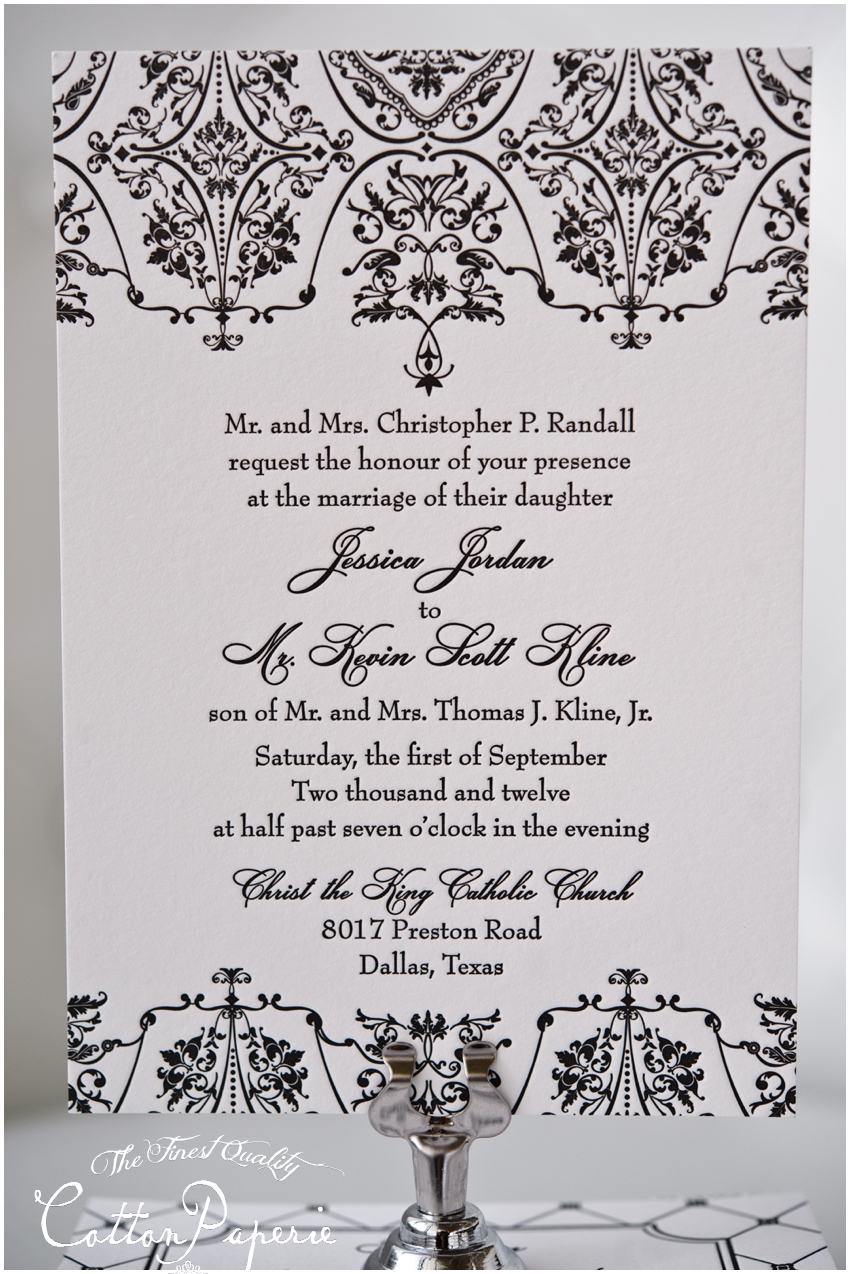 Mr. and Mrs. Christopher P. Randall
request the honour of your presence
at the marriage of their daughter
Jessica Jordan
to
Mr. Kevin Scott Kline
son of Mr. and Mrs. Thomas J. Kline, Jr.
Saturday, the first of September
Two thousand and twelve
at half past seven o'clock in the evening
Christ the King Catholic Church
8017 Preston Road
Dallas, Texas
The Finest Quality
Cotton Paperie